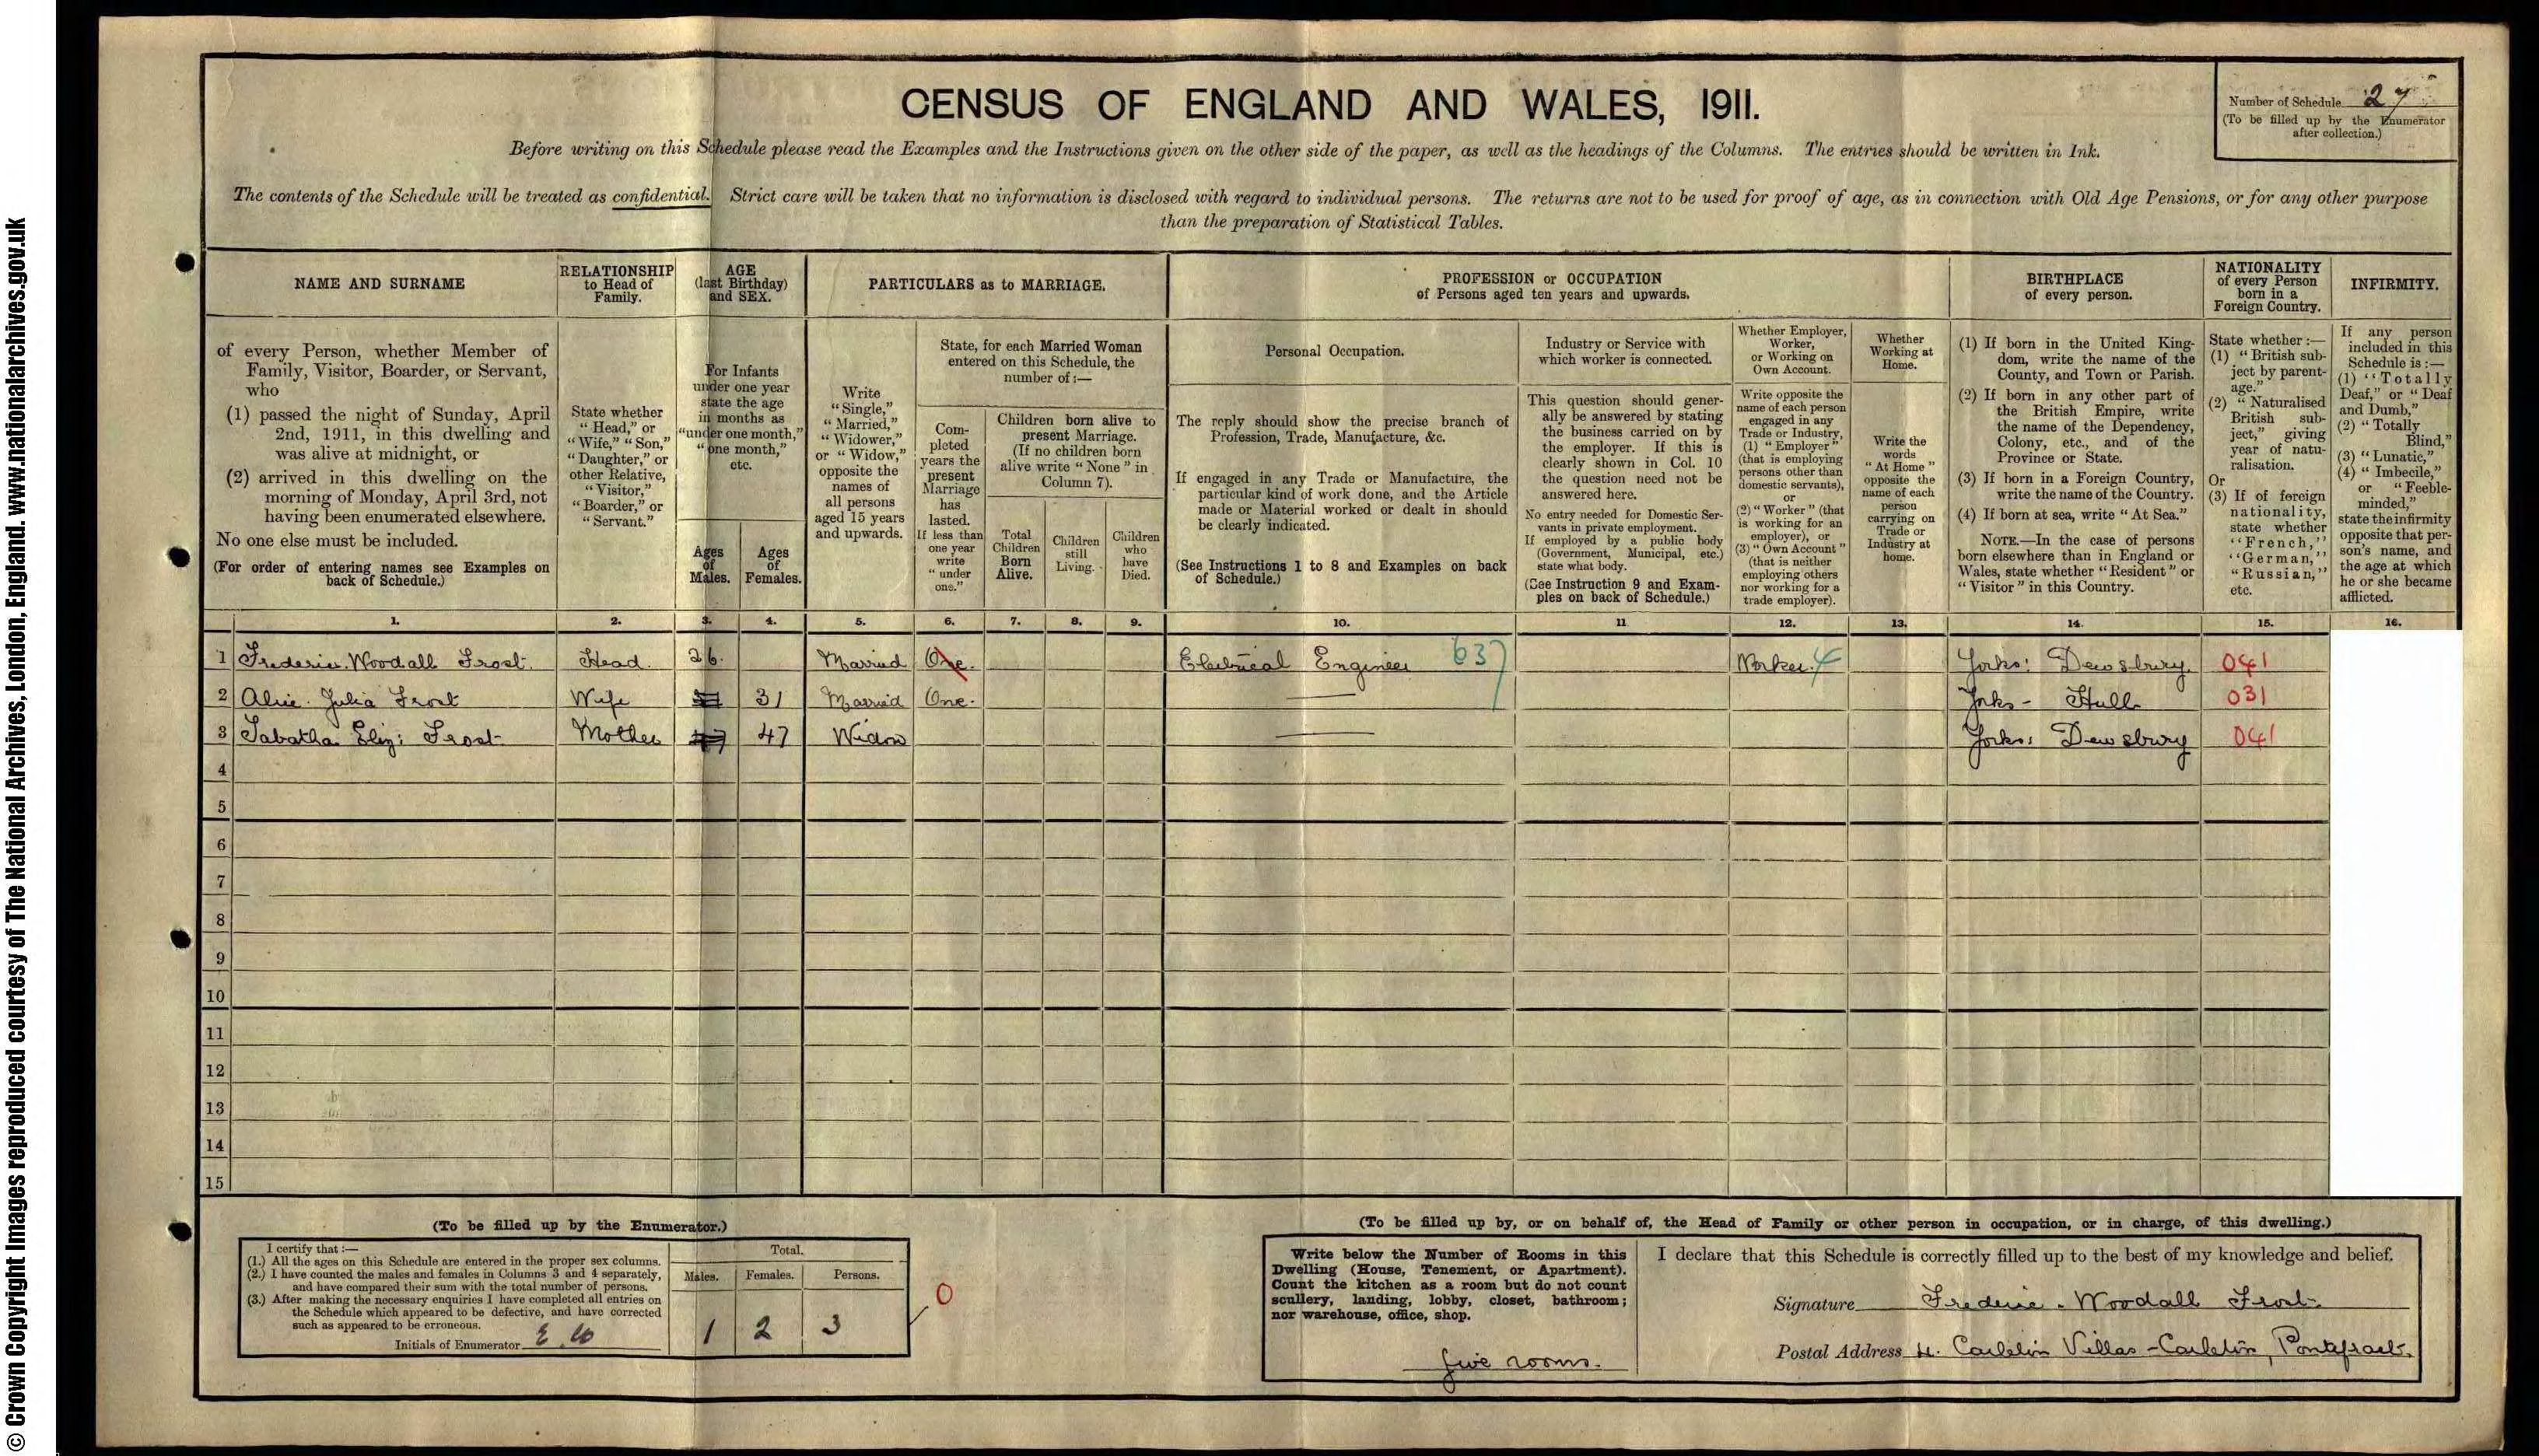 © Crown Copyright Images reproduced courtesy of The National Archives, London, England. www.nationalarchives.gov.uk
CENSUS OF ENGLAND AND WALES, 1911.
Number of Schedule 27
(To be filled up by the Enumerator
after collection.)
Before writing on this Schedule please read the Examples and the Instructions given on the other side of the paper, as well as the headings of the Columns. The entries should be written in Ink.
The contents of the Schedule will be treated as confidential. Strict care will be taken that no information is disclosed with regard to individual persons. The returns are not to be used for proof of age, as in connection with Old Age Pensions, or for any other purpose
than the preparation of Statistical Tables.
NAME AND SURNAME
of every Person, whether Member of
Family, Visitor, Boarder, or Servant,
who
(1) passed the night of Sunday, April
2nd, 1911, in this dwelling and
was alive at midnight, or
(2) arrived in this dwelling on the
morning of Monday, April 3rd, not
having been enumerated elsewhere.
No one else must be included.
(For order of entering names see Examples on
back of Schedule.)
RELATIONSHIP
to Head of
Family.
State whether
"Head," or
"Wife," "Son,"
"Daughter," or
other Relative,
"Visitor,"
"Boarder," or
"Servant."
AGE
(last Birthday)
and SEX.
For Infants
under one year
state the age
in months as
"under one month,"
"one month,"
etc.
Ages
of
Males.
Ages
of
Females.
PARTICULARS as to MARRIAGE.
Write
"Single,"
"Married,"
"Widower,"
or "Widow,"
opposite the
names of
all persons
aged 15 years
and upwards.
State, for each Married Woman
entered on this Schedule, the
number of:—
Com-
pleted
years the
present
Marriage
has
lasted.
If less than
one year
write
"under
one."
Children born alive to
present Marriage.
(If no children born
alive write "None" in
Column 7).
Total
Children
Born
Alive.
Children
still
Living.
Children
who
have
Died.
PROFESSION or OCCUPATION
of Persons aged ten years and upwards.
Personal Occupation.
The reply should show the precise branch of
Profession, Trade, Manufacture, &c.
If engaged in any Trade or Manufacture, the
particular kind of work done, and the Article
made or Material worked or dealt in should
be clearly indicated.
(See Instructions 1 to 8 and Examples on back
of Schedule.)
Industry or Service with
which worker is connected.
This question should gener-
ally be answered by stating
the business carried on by
the employer. If this is
clearly shown in Col. 10
the question need not be
answered here.
No entry needed for Domestic Ser-
vants in private employment.
If employed by a public body
(Government, Municipal, etc.)
state what body.
(See Instruction 9 and Exam-
ples on back of Schedule.)
Whether Employer,
Worker,
or Working on
Own Account.
Write opposite the
name of each person
engaged in any
Trade or Industry,
(1) "Employer"
(that is employing
persons other than
domestic servants),
or
(2) "Worker" (that
is working for an
employer), or
(3) "Own Account"
(that is neither
employing others
nor working for a
trade employer).
Whether
Working at
Home.
Write the
words
"At Home"
opposite the
name of each
person
carrying on
Trade or
Industry at
home.
BIRTHPLACE
of every person.
(1) If born in the United King-
dom, write the name of the
County, and Town or Parish.
(2) If born in any other part of
the British Empire, write
the name of the Dependency,
Colony, etc., and of the
Province or State.
(3) If born in a Foreign Country,
write the name of the Country.
(4) If born at sea, write "At Sea."
NOTE.—In the case of persons
born elsewhere than in England or
Wales, state whether "Resident" or
"Visitor" in this Country.
NATIONALITY
of every Person
born in a
Foreign Country.
State whether :—
(1) "British sub-
ject by parent-
age."
(2) "Naturalised
British sub-
ject," giving
year of natu-
ralisation.
Or
(3) If of foreign
nationality,
state whether
"French,"
"German,"
"Russian,"
etc.
INFIRMITY.
If any person
included in this
Schedule is :—
(1) "Totally
Deaf," or "Deaf
and Dumb,"
(2) "Totally
Blind,"
(3) "Lunatic,"
(4) "Imbecile,"
or "Feeble-
minded,"
state the infirmity
opposite that per-
son's name, and
the age at which
he or she became
afflicted.
1. 2. 3. 4. 5. 6. 7. 8. 9. 10. 11 12. 13. 14. 15. 16.
1 Frederic Woodall Frost. Head. 26. Married One. Electrical Engineer 637 Worker. 4 Yorks: Dewsbury. 041
2 Alice Julia Frost Wife 31 Married One. — Yorks - Hull 031
3 Tabatha Eliz: Frost Mother 47 Widow — Yorks: Dewsbury 041
4
5
6
7
8
9
10
11
12
13
14
15
(To be filled up by the Enumerator.)
I certify that :—
(1.) All the ages on this Schedule are entered in the proper sex columns.
(2.) I have counted the males and females in Columns 3 and 4 separately,
and have compared their sum with the total number of persons.
(3.) After making the necessary enquiries I have completed all entries on
the Schedule which appeared to be defective, and have corrected
such as appeared to be erroneous.
Initials of Enumerator
Total.
Males. Females. Persons.
1 2 3
0
(To be filled up by, or on behalf of, the Head of Family or other person in occupation, or in charge, of this dwelling.)
Write below the Number of Rooms in this
Dwelling (House, Tenement, or Apartment).
Count the kitchen as a room but do not count
scullery, landing, lobby, closet, bathroom;
nor warehouse, office, shop.
five rooms.
I declare that this Schedule is correctly filled up to the best of my knowledge and belief.
Signature Frederic Woodall Frost.
Postal Address 4. Carleton Villas - Carleton, Pontefract.